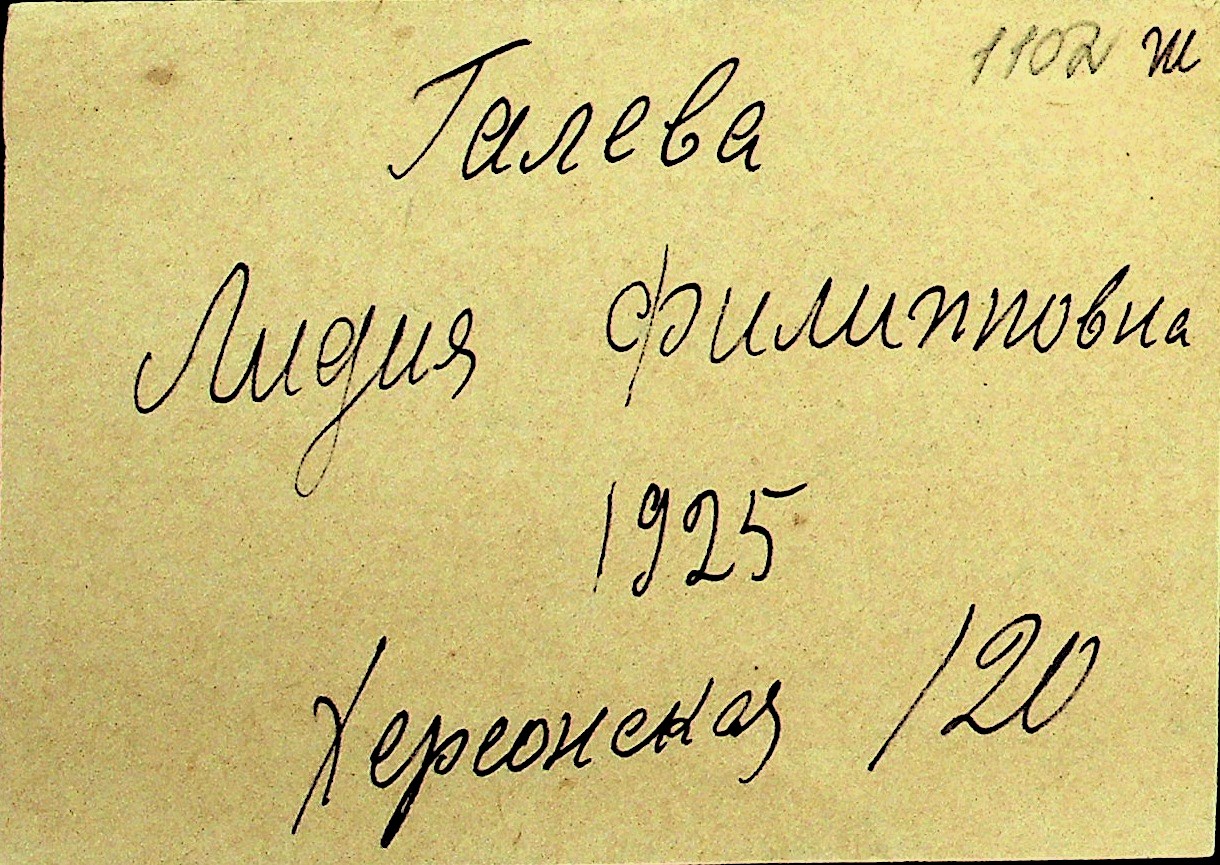 1102 ж
Галева
Лидия Филипповна
1925
Херсонская 120